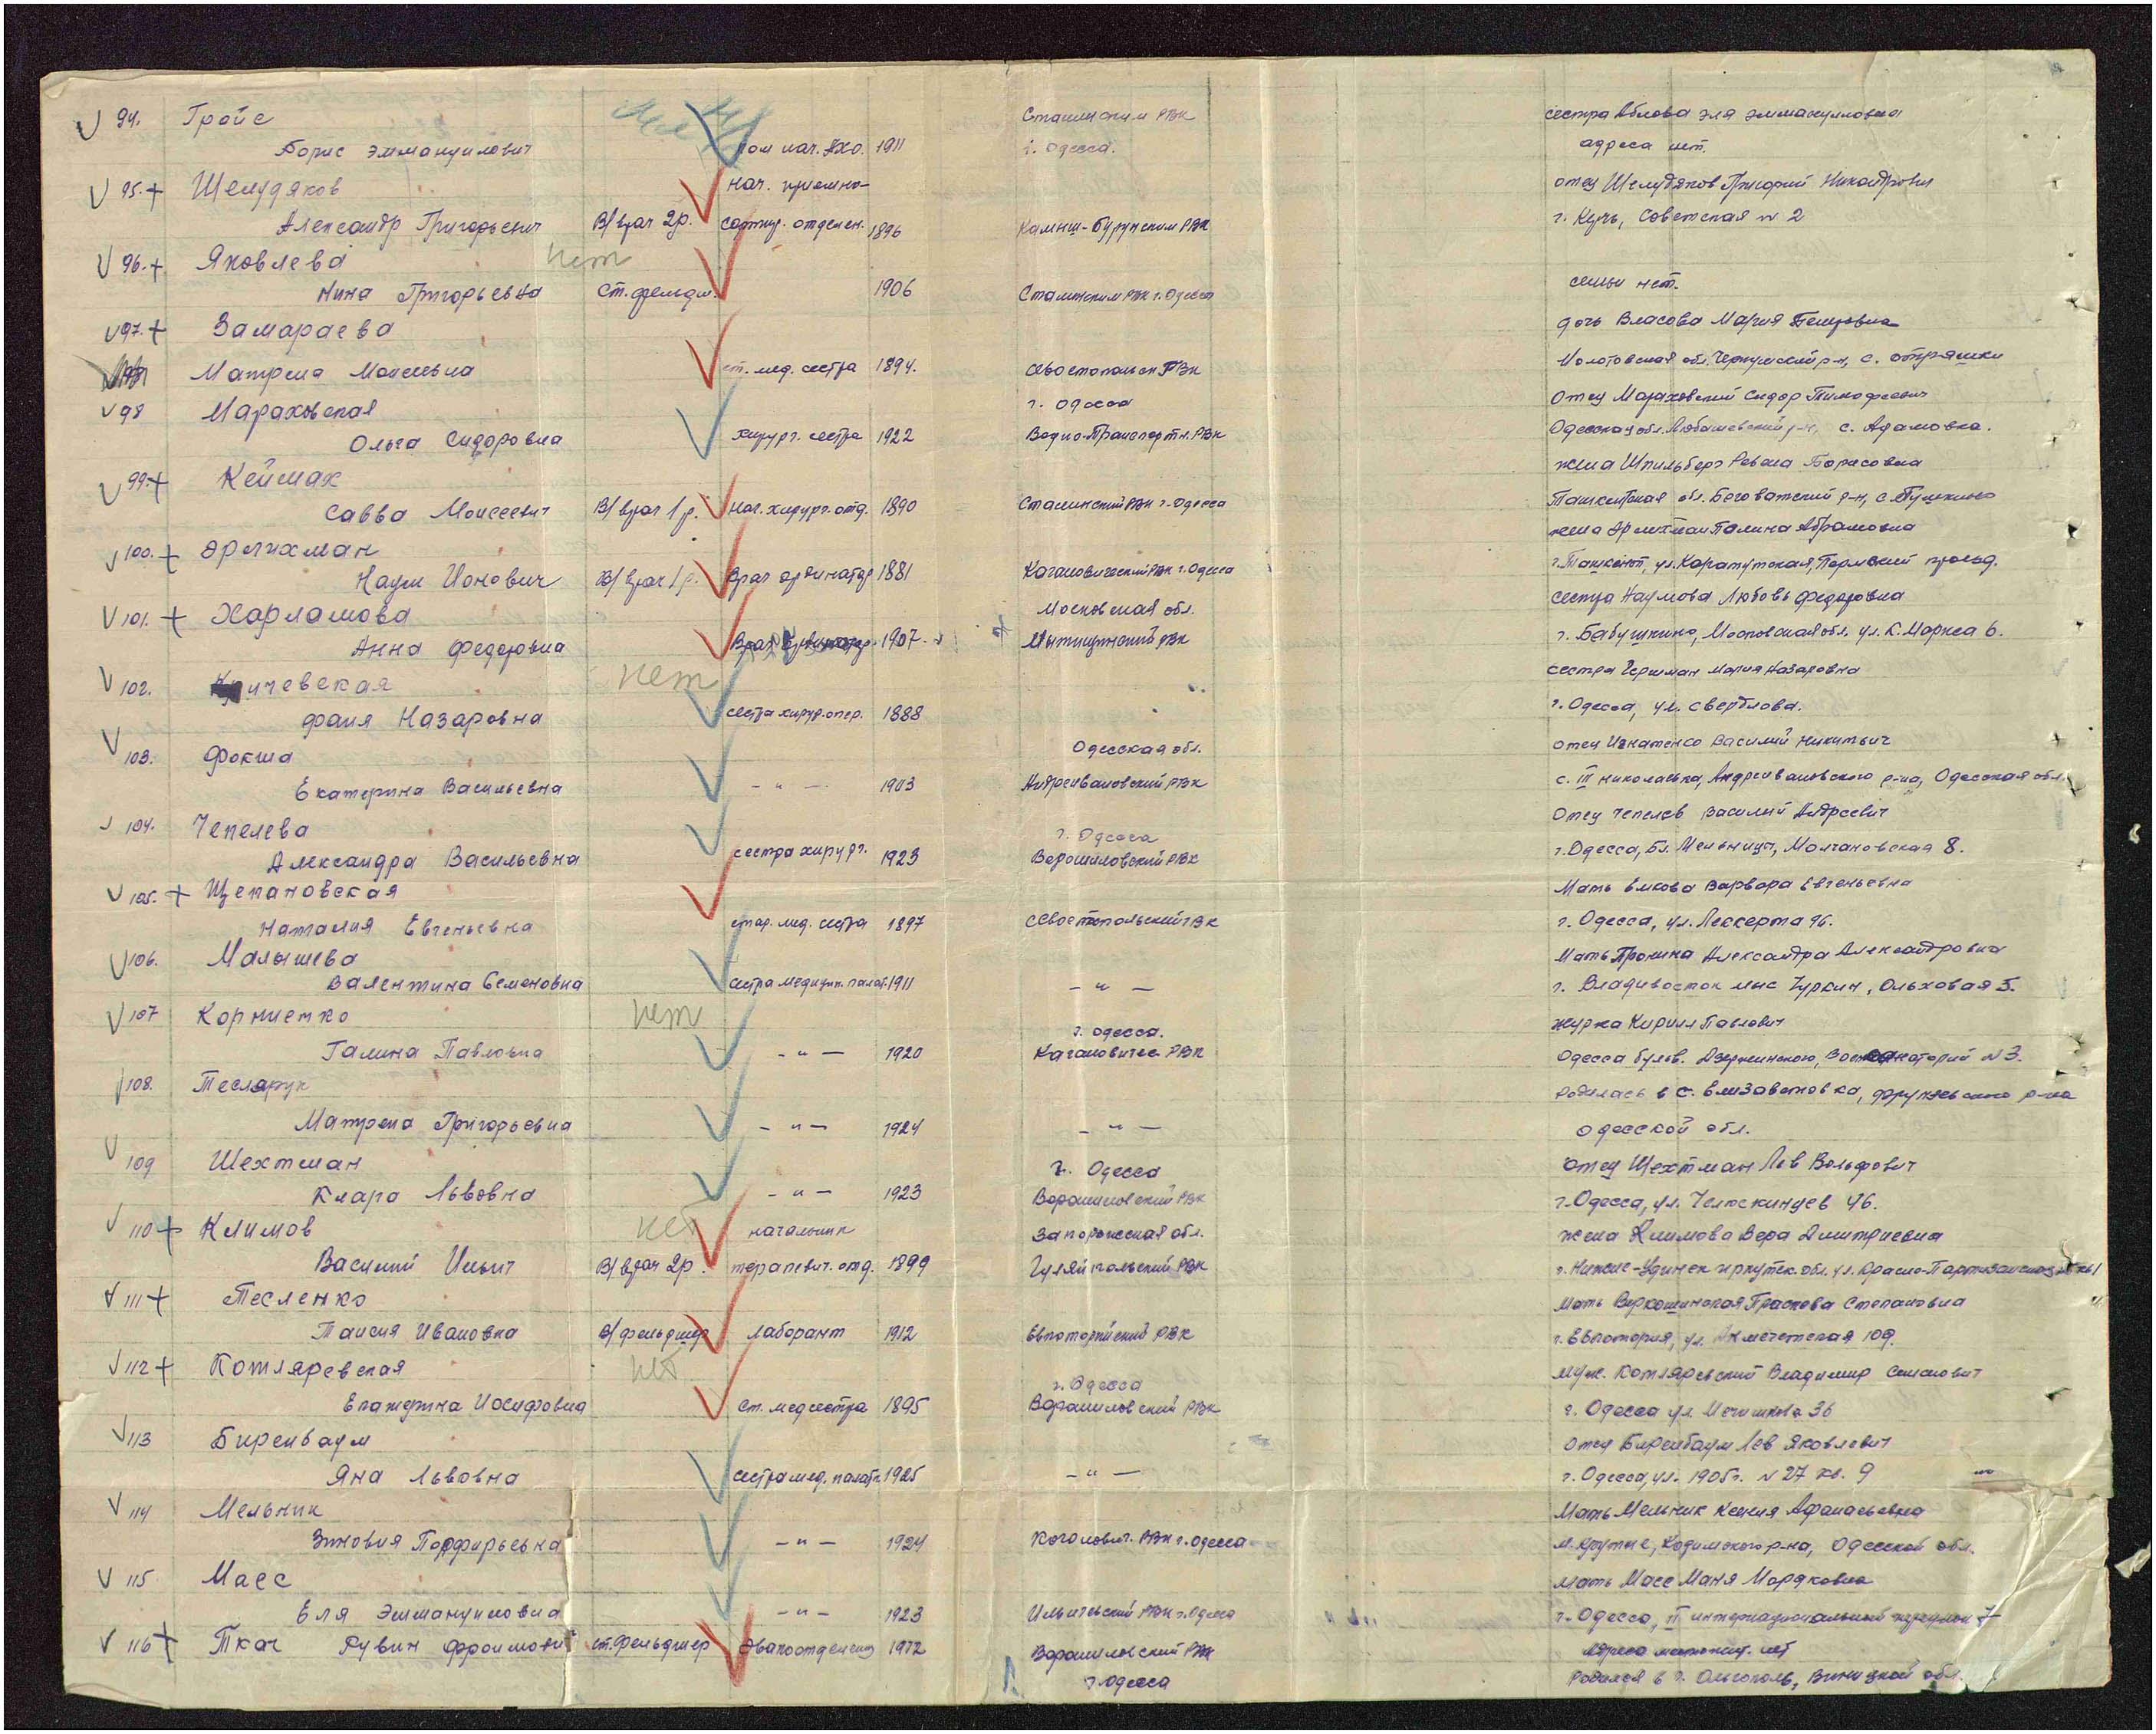 94. Гройс Сталинским РВК сестра Аблова Эля Эммануиловна
Борис Эммануилович пом нач. АХО. 1911 г. Одесса. адреса нет.
95.+ Шелудяков нач. приемно- отец Шелудяков Григорий Никандрович
Александр Григорьевич В/врач 2р. сортир. отделен. 1896 Камыш-Бурунским РВК г. Керчь, Советская № 2
96.+ Яковлева нет
Нина Григорьевна Ст. фельдш. 1906 Сталинским РВК г. Одесса семьи нет.
97.+ Замараева дочь Власова Мария Петровна
Матрена Моисеевна ст. мед. сестра 1894. Севостопольск РВК Молотовская обл. р-н, с.
98 Мараховская г. Одесса Отец Мараховский Сидор Тимофеевич
Ольга Сидоровна хирург. сестра 1922 Водно-Транспортн. РВК Одесская обл. Любашевский р-н, с. Адамовка.
99.+ Кеймах жена Шпильберг Ревека Борисовна
Савва Моисеевич В/врач 1 р. нач. хирург. отд. 1890 Сталинский РВК г. Одесса Ташкентская обл. Беговатский р-н, с.
100.+ Эрлихман жена Эрлихман Галина Абрамовна
Наум Ионович В/врач 1 р. врач ординатор 1881 Кагановический РВК г. Одесса г. Ташкент, ул. проезд.
101.+ Харламова Московская обл. сестра Наумова Любовь Федоровна
Анна Федоровна Врач 1907 Мытищинский РВК г. Бабушкино, Московская обл. ул. К. Маркса 6.
102. Кричевская нет сестра Мария Назаровна
Фаня Назаровна сестра хирур. опер. 1888 г. Одесса, ул. Свердлова.
103. Фокша Одесская обл. отец Игнатенко Василий Никитьич
Екатерина Васильевна - " - 1903 Андреивановский РВК с. III Николаевка, Андреивановского р-на, Одесская обл.
104. Чепелева г. Одесса Отец Чепелев Василий Андреевич
Александра Васильевна сестра хирург. 1923 Ворошиловский РВК г. Одесса, Бл. Мельницы, Молчановская 8.
105.+ Щепановская Мать Варвара Евгеньевна
Наталия Евгеньевна стар. мед. сестра 1897 Севостопольский РВК г. Одесса, ул. Леккерта 96.
106. Малышева Мать Пронина Александра Александровна
Валентина Семеновна сестра медицин. палат. 1911 - " - г. Владивосток мыс Чуркин, Ольховая 5.
107 Корниенко нет г. Одесса. Журжа Кирилл Павлович
Галина Павловна - " - 1920 Кагановичес РВК Одесса бульв. Дзержинского, № 3.
108. Теслярук Родилась в с. Елизаветовка, Фрунзевского р-на
Матрена Григорьевна - " - 1924 - " - Одесской обл.
109 Шехтман г. Одесса Отец Шехтман Лев Вольфович
Клара Львовна - " - 1923 Ворошиловский РВК г. Одесса, ул. Челюскинцев 46.
110+ Климов нет начальник Запорожская обл. жена Климова Вера Дмитриевна
Василий Ильич В/врач 2р. терапевт. отд. 1899 Гуляйпольский РВК г. Нижне-Удинск Иркутск. обл. ул. Красно-Партизанская
111+ Тесленко мать Прасковья Степановна
Таисия Ивановна В/фельдшер лаборант 1912 Евпаторийский РВК г. Евпатория, ул. 109.
112+ Котляревская нет г. Одесса муж. Котляревский Владимир
Екатерина Иосифовна ст. медсестра 1895 Ворошиловский РВК г. Одесса ул. Мечникова 36
113 Биренбаум отец Биренбаум Лев Яковлевич
Яна Львовна сестра мед. палатн. 1925 - " - г. Одесса, ул. 1905 г. № 27 кв. 9
114 Мельник Мать Мельник Ксения Афанасьевна
Зиновия Порфирьевна - " - 1924 Коганович. РВК г. Одесса м. Крутые, Кодымского р-на, Одесской обл.
115 Масс мать Масс Маня Мордковна
Еля Эммануиловна - " - 1923 Ильичевский РВК г. Одесса г. Одесса, интернациональный переулок 7
116+ Ткач Рувин Фроимович ст. фельдшер эвакоотделения 1912 Ворошиловский РВК адреса нет
г. Одесса Родился в г. Ольгополь, Виницкой обл.